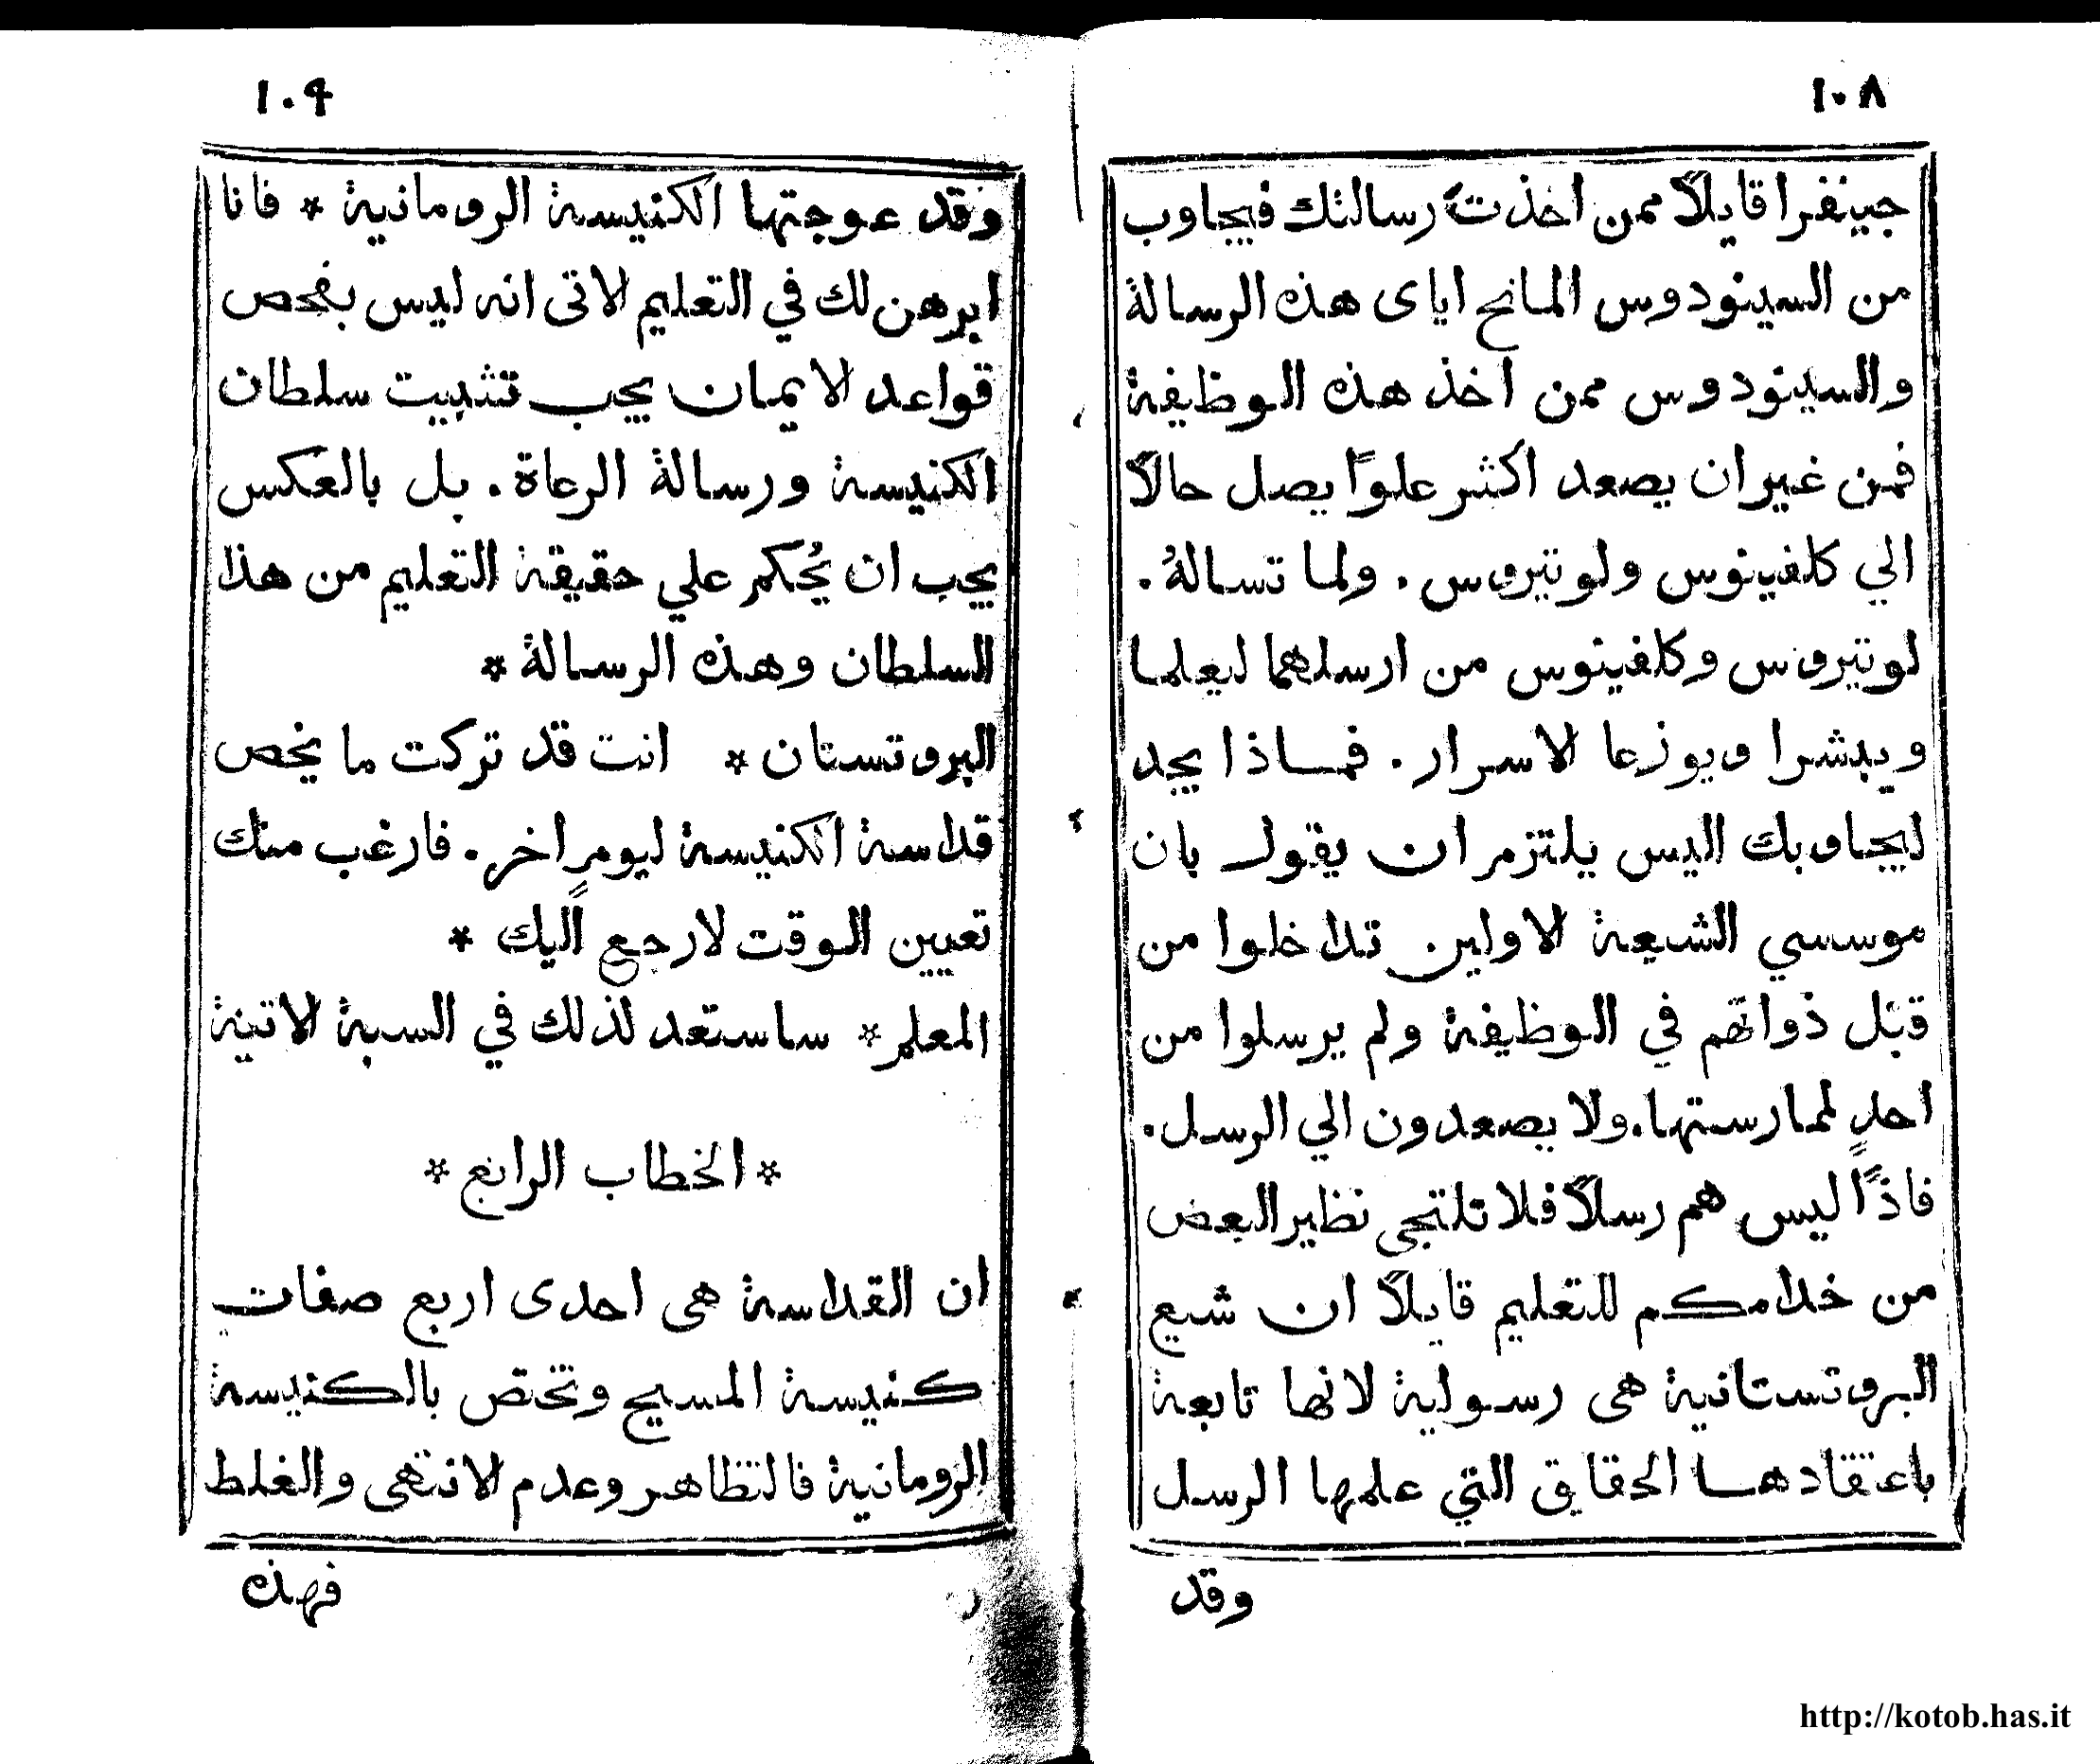 ١٠٨
جينفرا قايلاً ممن اخذت رسالتك فيجاوب
من السينودوس المانح اياى هذه الرسالة
والسينودوس ممن اخذ هذه الوظيفة
فمن غير ان يصعد اكثر علوًا يصل حالاً
الي كلفينوس ولوتيروس. ولما تسالهُ.
لوتيروس وكلفينوس من ارسلهما ليعلما
ويبشرا ويوزعا الاسرار. فماذا يجد
ليجاوبك اليس يلتزم ان يقول بان
موسسي الشيعة الاولين. تداخلوا من
قبَل ذواتهم في الوظيفة ولم يرسلوا من
احدٍ لممارستها. ولا يصعدون الي الرسل.
فاذًا ليس هم رسلاً فلا تلتجى نظير البعض
من خدامكم للتعليم قايلاً ان شيع
البروتستانية هى رسولية لانها تابعة
باعتقادها الحقايق التي علمها الرسل
وقد
١٠٩
وقد عوجتها الكنيسة الرومانية * فانا
ابرهن لك في التعليم الاتى انه ليس بفحص
قواعد الايمان يجب تثبيت سلطان
الكنيسة ورسالة الرعاة. بل بالعكس
يجب ان يُحكم علي حقيقة التعليم من هذا
السلطان وهذه الرسالة *
البروتستان * انت قد تركت ما يخص
قداسة الكنيسة ليومٍ اخر. فارغب منك
تعيين الوقت لارجع اليك *
المعلم * ساستعد لذلك في السبة الاتية
* الخطاب الرابع *
ان القداسة هى احدى اربع صفات
كنيسة المسيح وتختص بالكنيسة
الرومانية فالتظاهر وعدم الانتهى والغلط
فهذه
http://kotob.has.it